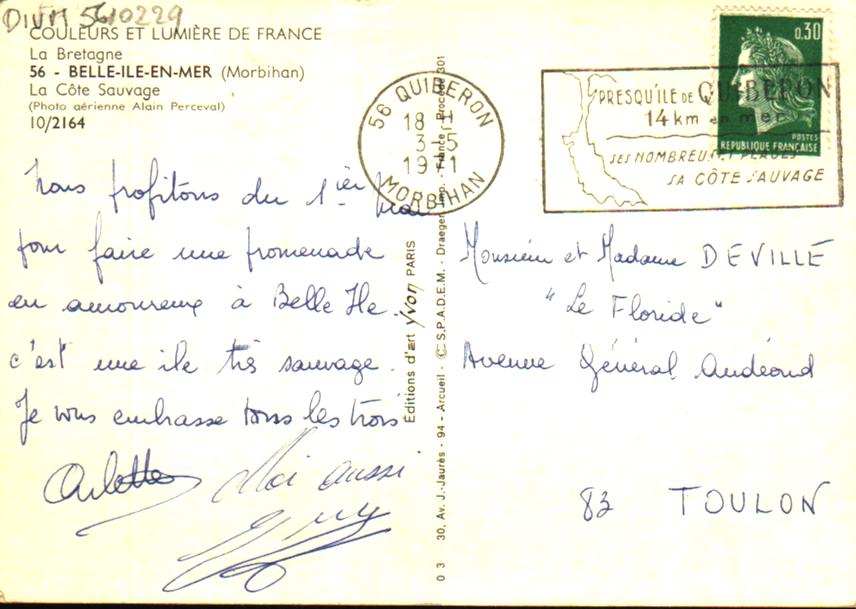 DIVM 5610229
COULEURS ET LUMIÈRE DE FRANCE
La Bretagne
56 - BELLE-ILE-EN-MER (Morbihan)
La Côte Sauvage
(Photo aérienne Alain Perceval)
10/2164
Nous profitons du 1ier Mai
pour faire une promenade
en amoureux à Belle Ile.
c'est une ile très sauvage.
Je vous embrasse tous les trois
Arlette
Moi aussi
Guy
56 QUIBERON
18 H
3-5
1971
MORBIHAN
0.30
POSTES
REPUBLIQUE FRANÇAISE
PRESQU'ILE DE QUIBERON
14 km en mer
SES NOMBREUSES PLAGES
SA CÔTE SAUVAGE
Éditions d'art Yvon PARIS
0 3 30, Av. J.-Jaurès - 94 - Arcueil - © S.P.A.D.E.M. - Draeger Imp. France - Procédé 301
Monsieur et Madame DEVILLE
"Le Floride"
Avenue Général Audéoud
83 TOULON